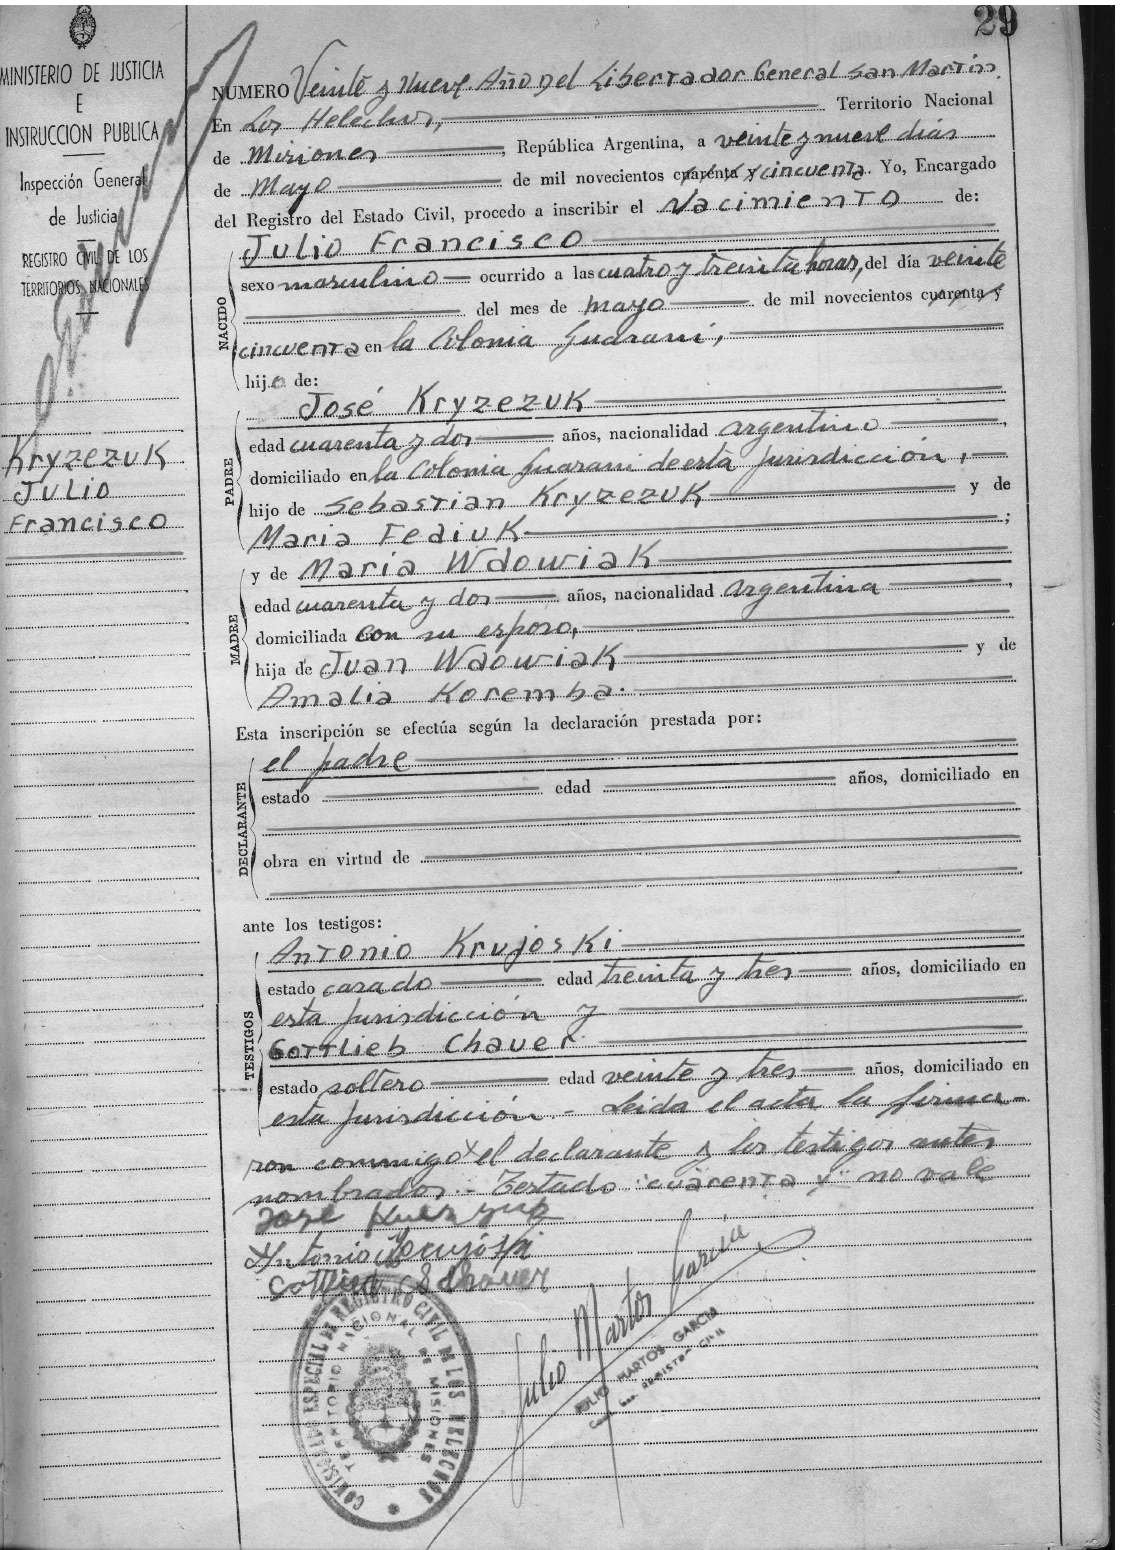 29
MINISTERIO DE JUSTICIA
E
INSTRUCCION PUBLICA
Inspección General
de Justicia
REGISTRO CIVIL DE LOS
TERRITORIOS NACIONALES
Kryzezuk
Julio
Francisco
NUMERO Veinte y nueve. Año del Libertador General San Martín.
En Los Helechos, Territorio Nacional
de Misiones, República Argentina, a veinte y nueve días
de Mayo de mil novecientos cuarenta y cincuenta. Yo, Encargado
del Registro del Estado Civil, procedo a inscribir el Nacimiento de:
NACIDO
Julio Francisco
sexo masculino ocurrido a las cuatro y treinta horas, del día veinte
del mes de mayo de mil novecientos cuarenta y
cincuenta en la Colonia Guaraní,
hijo de:
PADRE
José Kryzezuk
edad cuarenta y dos años, nacionalidad argentino,
domiciliado en la Colonia Guarani de esta jurisdicción,
hijo de Sebastian Kryzezuk y de
Maria Fediuk;
MADRE
y de Maria Wdowiak
edad cuarenta y dos años, nacionalidad argentina,
domiciliada con su esposo,
hija de Juan Wdowiak y de
Amalia Koremba.
Esta inscripción se efectúa según la declaración prestada por:
DECLARANTE
el padre
estado edad años, domiciliado en
obra en virtud de
ante los testigos:
TESTIGOS
Antonio Krujoski
estado casado edad treinta y tres años, domiciliado en
esta jurisdicción y
Gottlieb Chauer
estado soltero edad veinte y tres años, domiciliado en
esta jurisdicción.- Leida el acta la firma-
ron conmigo el declarante y los testigos antes
nombrados.- Testado "cuarenta y" no vale
José
Antonio
Julio Martos García
JULIO MARTOS GARCIA
REGISTRO CIVIL
ESPECIAL DE REGISTRO CIVIL DE LOS HELECHOS
TERRITORIO NACIONAL DE MISIONES